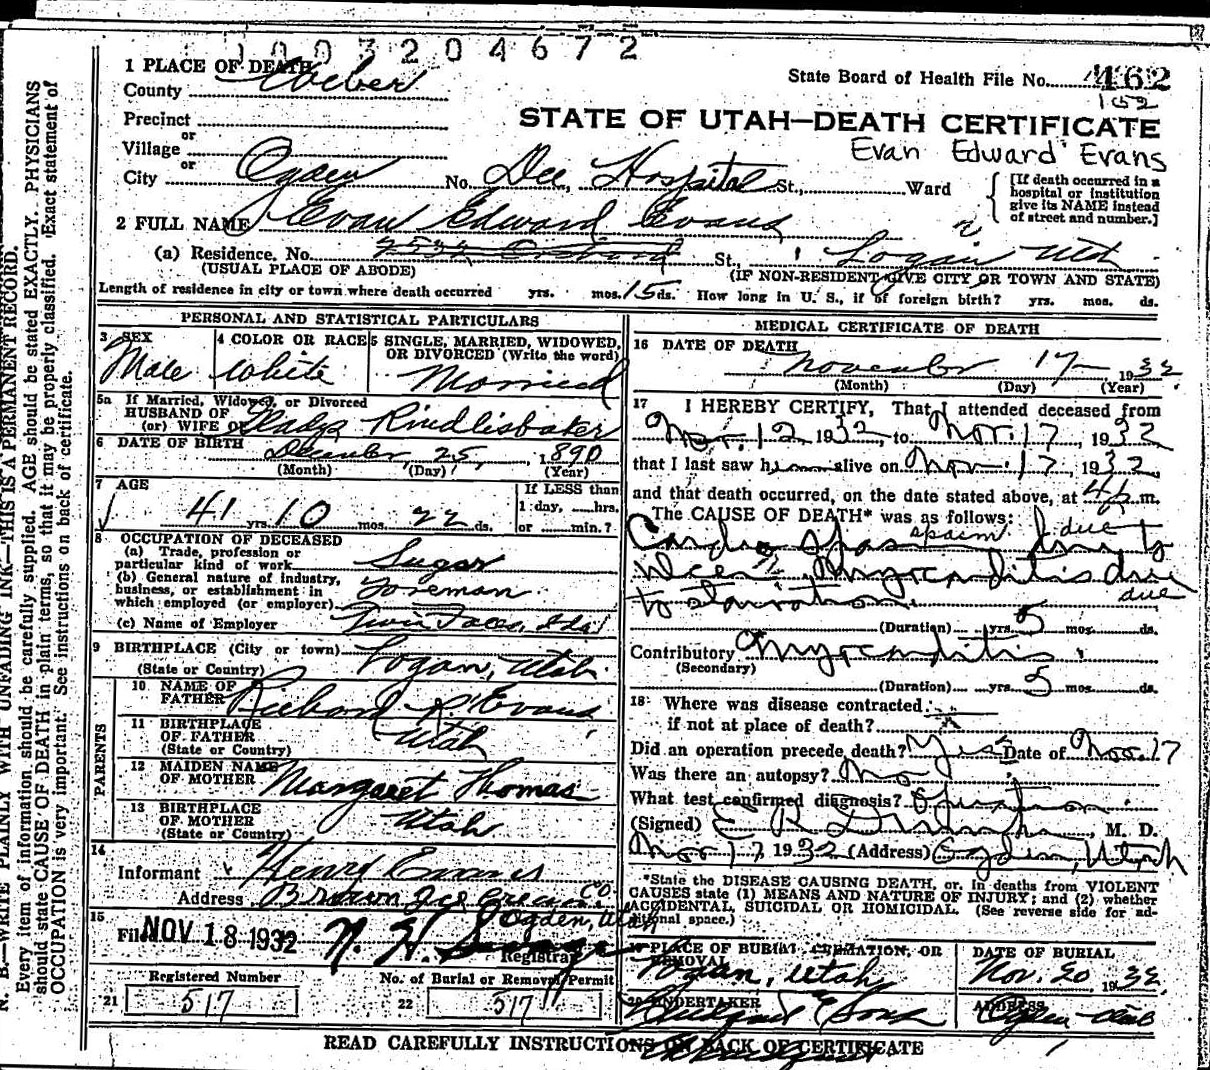 1003204672
1 PLACE OF DEATH
County Weber
State Board of Health File No. 462
152
Precinct
or
Village
or
City Ogden No. Dee Hospital St., Ward
STATE OF UTAH—DEATH CERTIFICATE
Evan Edward Evans
[If death occurred in a hospital or institution give its NAME instead of street and number.]
2 FULL NAME Evan Edward Evans
(a) Residence, No. 2532 St., Logan Utah
(USUAL PLACE OF ABODE) (IF NON-RESIDENT GIVE CITY OR TOWN AND STATE)
Length of residence in city or town where death occurred yrs. mos. 15 ds. How long in U. S., if of foreign birth? yrs. mos. ds.
PERSONAL AND STATISTICAL PARTICULARS
3 SEX 4 COLOR OR RACE 5 SINGLE, MARRIED, WIDOWED, OR DIVORCED (Write the word)
Male White Married
5a If Married, Widowed, or Divorced
HUSBAND OF
(or) WIFE OF Gladys Rindlisbaker
6 DATE OF BIRTH December 25, 1890
(Month) (Day) (Year)
7 AGE
41 yrs. 10 mos. 22 ds.
If LESS than
1 day, hrs.
or min.?
8 OCCUPATION OF DECEASED
(a) Trade, profession or
particular kind of work Sugar
(b) General nature of industry,
business, or establishment in
which employed (or employer) Foreman
(c) Name of Employer Twin Falls, Ida
9 BIRTHPLACE (City or town)
(State or Country) Logan, Utah
PARENTS
10 NAME OF
FATHER Richard Evans
11 BIRTHPLACE
OF FATHER
(State or Country) Utah
12 MAIDEN NAME
OF MOTHER Margaret Thomas
13 BIRTHPLACE
OF MOTHER
(State or Country) Utah
14
Informant Henry Evans
Address Brown Ice Cream Co
Ogden, Utah
15
Filed NOV 18 1932 N. H. Savage
Registrar
Registered Number No. of Burial or Removal Permit
21 517 22 517
MEDICAL CERTIFICATE OF DEATH
16 DATE OF DEATH
November 17 1932
(Month) (Day) (Year)
17 I HEREBY CERTIFY, That I attended deceased from
Nov. 12 1932, to Nov. 17, 1932
that I last saw him alive on Nov. 17, 1932
and that death occurred, on the date stated above, at 4 p.m.
The CAUSE OF DEATH* was as follows:
Cardio spasm spasm due to due
ulcer, Myocarditis due
to starvation. due
(Duration) yrs. 5 mos. ds.
Contributory Myocarditis
(Secondary)
(Duration) yrs. 5 mos. ds.
18 Where was disease contracted
if not at place of death?
Did an operation precede death? Yes Date of Nov. 17
Was there an autopsy? No
What test confirmed diagnosis? Operation
(Signed) E R M. D.
Nov 17 1932 (Address) Ogden, Utah
*State the DISEASE CAUSING DEATH, or, in deaths from VIOLENT
CAUSES state (1) MEANS AND NATURE OF INJURY; and (2) whether
ACCIDENTAL, SUICIDAL OR HOMICIDAL. (See reverse side for additional space.)
19 PLACE OF BURIAL, CREMATION, OR REMOVAL DATE OF BURIAL
Logan, Utah Nov. 20, 1932
20 UNDERTAKER ADDRESS
& Sons Ogden
READ CAREFULLY INSTRUCTIONS ON BACK OF CERTIFICATE
N. B.—WRITE PLAINLY WITH UNFADING INK—THIS IS A PERMANENT RECORD.
Every item of information should be carefully supplied. AGE should be stated EXACTLY. PHYSICIANS
should state CAUSE OF DEATH in plain terms, so that it may be properly classified. Exact statement of
OCCUPATION is very important. See instructions on back of certificate.